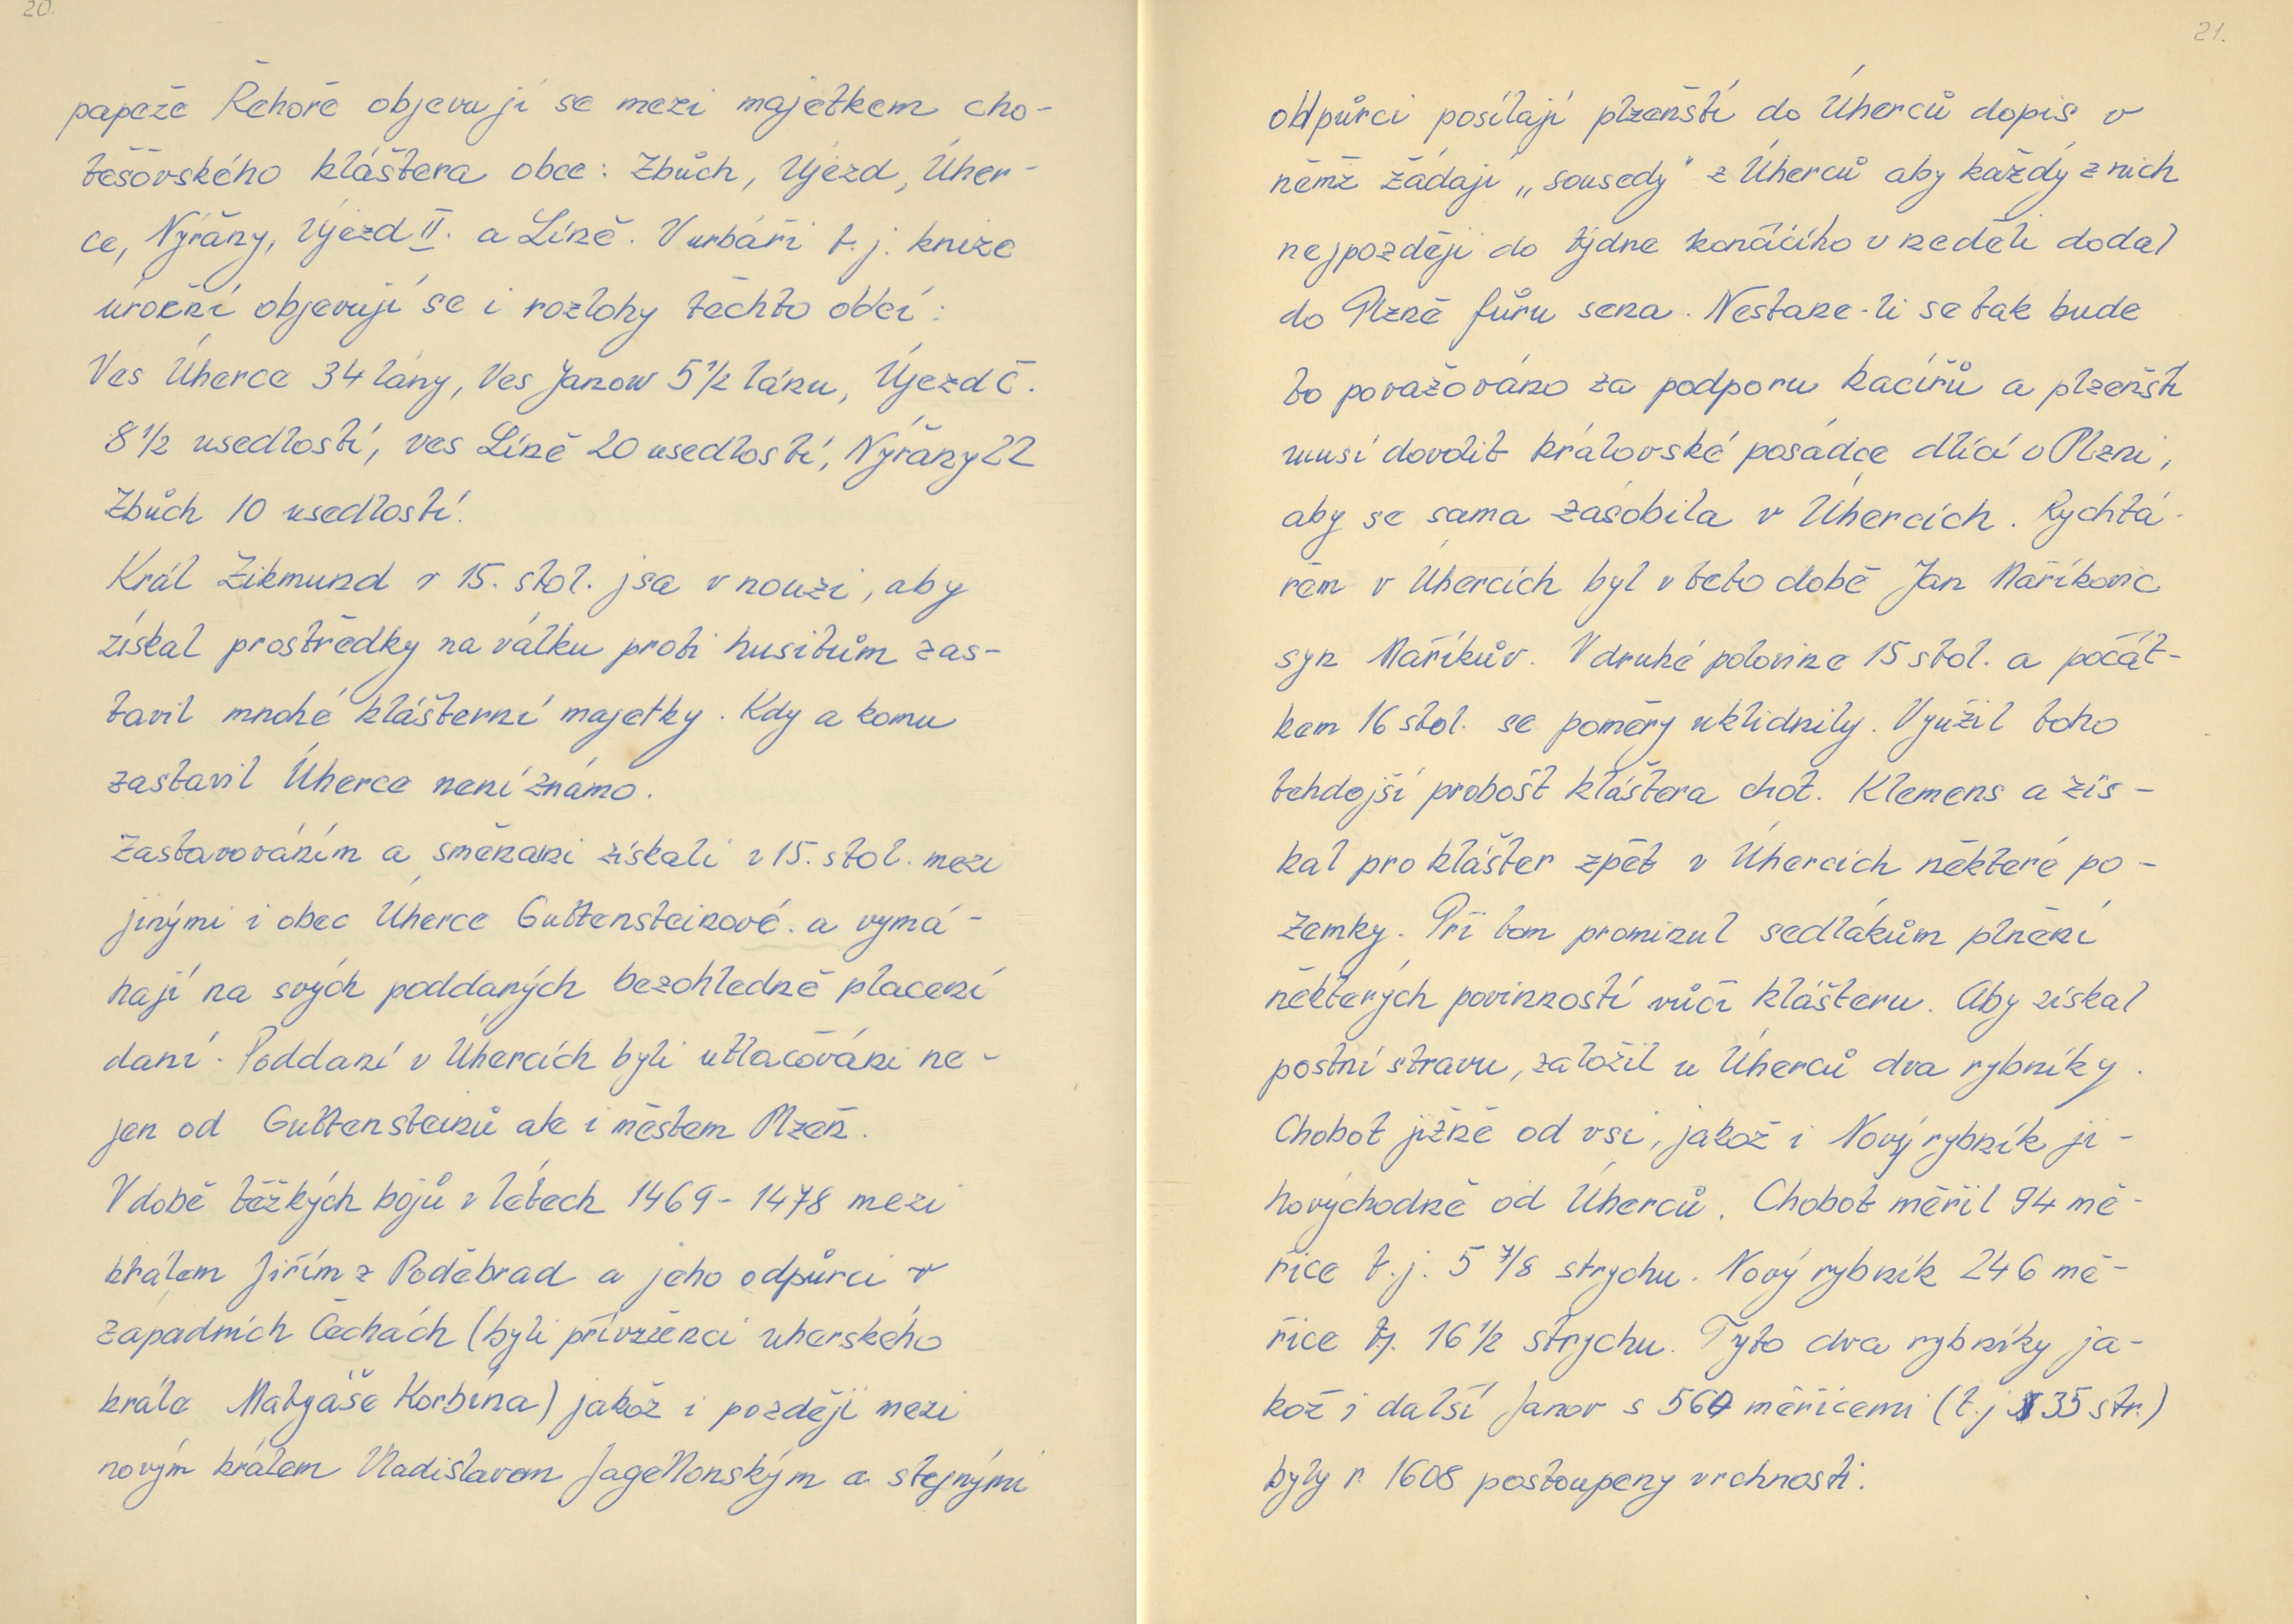 20.
papeže Řehoře objevují se mezi majetkem cho-
těšovského kláštera obce: Zbůch, Újezd, Úher-
ce, Nýřany, Újezd II. a Líně. V urbáři t.j. knize
úroční objevují se i rozlohy těchto obcí:
Ves Úherce 34 lány, Ves Janow 5 1/2 lánu, Újezd č.
8 1/2 usedlostí, ves Líně 20 usedlostí, Nýřany 22
Zbůch 10 usedlostí.
Král Zikmund v 15. stol. jsa v nouzi, aby
získal prostředky na válku proti husitům zas-
tavil mnohé klášterní majetky. Kdy a komu
zastavil Úherce není známo.
Zastavováním a směnami získali v 15. stol. mezi
jinými i obec Úherce Guttensteinové. a vymá-
hají na svých poddaných bezohledně placení
daní. Poddaní v Úhercích byli utlačováni ne-
jen od Guttensteinů ale i městem Plzeň.
V době těžkých bojů v létech 1469 - 1478 mezi
králem Jiřím z Poděbrad a jeho odpůrci v
západních Čechách (byli přívrženci uherského
krále Matyáše Korbína) jakož i později mezi
novým králem Vladislavem Jagellonským a stejnými
21.
odpůrci posílají plzeňští do Úherců dopis v
němž žádají „sousedy" z Úherců aby každý z nich
nejpozději do týdne končícího v neděli dodal
do Plzně fůru sena. Nestane-li se tak bude
to považováno za podporu kacířů a plzeňští
musí dovolit královské posádce dlící v Plzni,
aby se sama zásobila v Úhercích. Rychtá-
řem v Úhercích byl v této době Jan Maříkovic
syn Maříkův. V druhé polovině 15 stol. a počát-
kem 16 stol. se poměry uklidnily. Využil toho
tehdejší probošt kláštera chot. Klemens a zís-
kal pro klášter zpět v Úhercích některé po-
zemky. Při tom prominul sedlákům plnění
některých povinností vůči klášteru. Aby získal
postní stravu, založil u Úherců dva rybníky.
Chobot jižně od vsi, jakož i Nový rybník ji-
hovýchodně od Úherců. Chobot měřil 94 mě-
řice t.j. 5 7/8 strychu. Nový rybník 246 mě-
řice t.j. 16 1/2 strychu. Tyto dva rybníky ja-
kož i další Janov s 560 měřicemi (t.j 35 str.)
byly r. 1608 postoupeny vrchnosti.